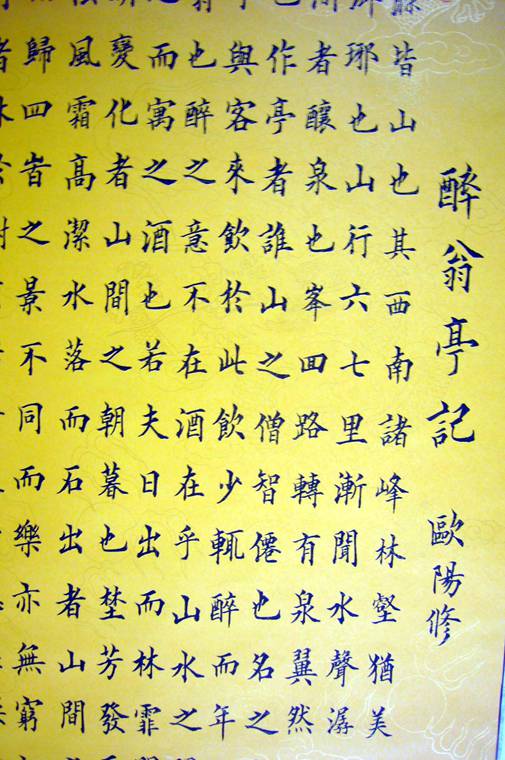 醉翁亭記 歐陽修
皆山也其西南諸峰林壑猶美
琊也山行六七里漸聞水聲潺
者釀泉也峯囬路轉有泉翼然
作亭者誰山之僧智僊也名之
與客來飲於此飲少輒醉而年
也醉之意不在酒在乎山水之
而寓之酒也若夫日出而林霏
變化者山間之朝暮也埜芳發
風霜高潔水落而石出者山間
歸四旹之景不同而樂亦無窮